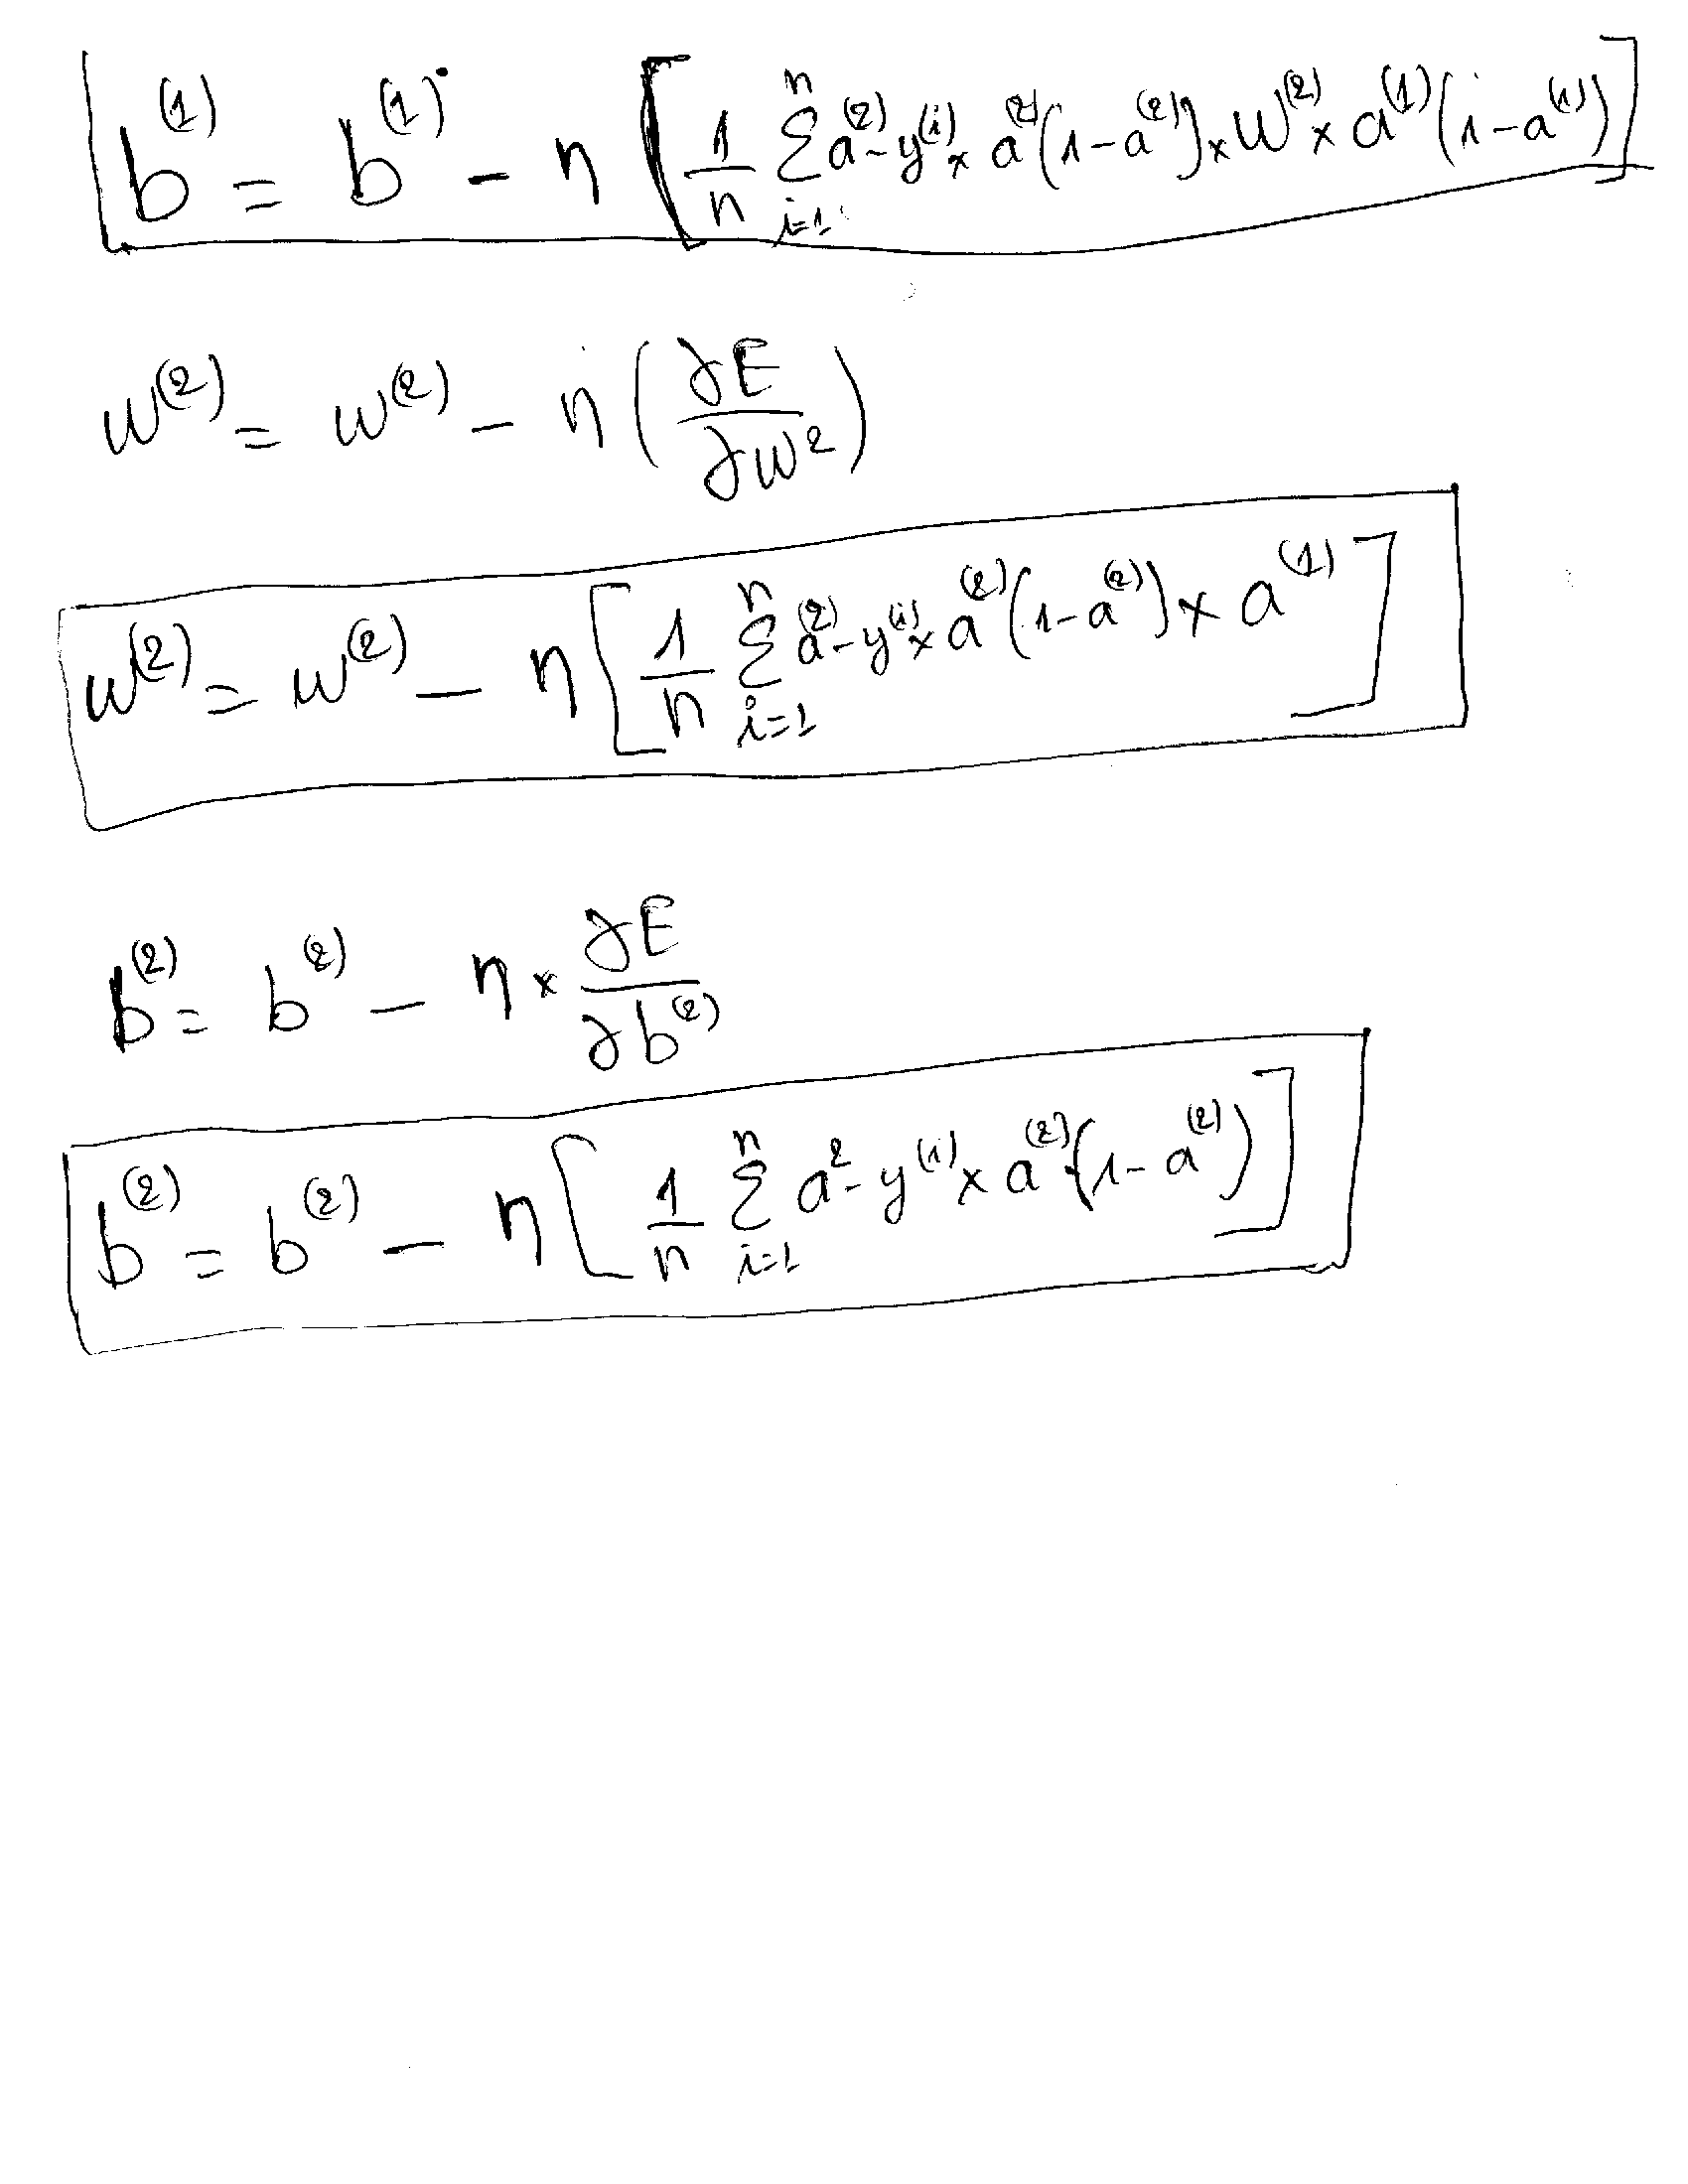 b^(1) = b^(1) - η [ 1/n Σ_{i=1}^{n} a^(2) - y^(i) × a^(2) (1 - a^(2)) × W^(2) × a^(1) (1 - a^(1)) ]
w^(2) = w^(2) - η ( ∂E / ∂w^2 )
w^(2) = w^(2) - η [ 1/n Σ_{i=1}^{n} a^(2) - y^(i) × a^(2) (1 - a^(2)) × a^(1) ]
b^(2) = b^(2) - η × ∂E / ∂b^(2)
b^(2) = b^(2) - η [ 1/n Σ_{i=1}^{n} a^2 - y^(i) × a^(2) (1 - a^(2)) ]